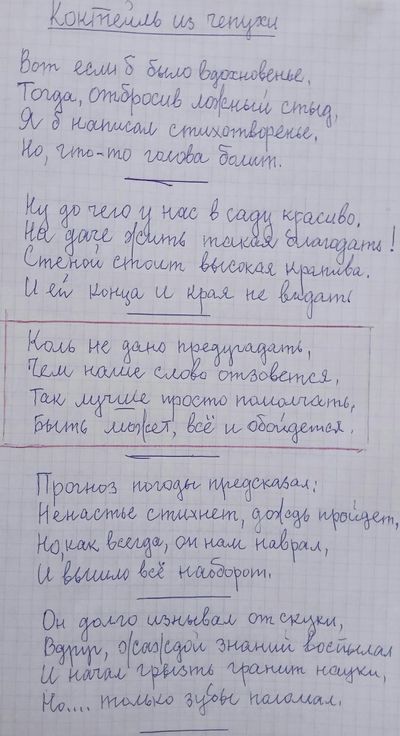 Коктейль из чепухи
Вот если б было вдохновенье,
Тогда, отбросив ложный стыд,
Я б написал стихотворенье.
Но, что-то голова болит.
Ну до чего у нас в саду красиво,
На даче жить такая благодать!
Стеной стоит высокая крапива.
И ей конца и края не видать
Коль не дано предугадать,
Чем наше слово отзовется,
Так лучше просто помолчать,
Быть может, всё и обойдется.
Прогноз погоды предсказал:
Ненастье стихнет, дождь пройдет,
Но, как всегда, он нам наврал,
И вышло всё наоборот.
Он долго изнывал от скуки,
Вдруг, жаждой знаний воспылал
И начал грызть гранит науки,
Но.... только зубы поломал.